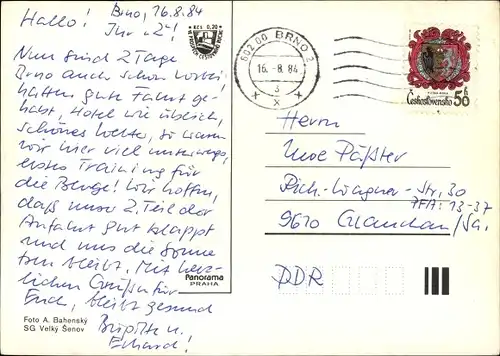 Hallo! Brno, 16.8.84
Ihr "2"!
Nun sind 2 Tage
Brno auch schon vorbei!
hatten gute Fahrt ge-
habt, Hotel wie üblich,
schönes Wetter, so waren
wir hier viel unterwegs,
erstes Training für
die Berge! Wir hoffen,
daß unser 2. Teil der
Anfahrt gut klappt
und uns die Sonne
treu bleibt. Mit herz-
lichen Grüßen für
Euch, bleibt gesund
Brigitte u.
Ekhard!
Kčs 0,20
602 00 BRNO 2
16. -8. 84
Československo 50 h
Herrn
Uwe Päßler
Rich.-Wagner-Str. 30
PFA: 13-37
9610 Glauchau/Sa.
DDR
Panorama
PRAHA
Foto A. Bahenský
SG Velký Šenov